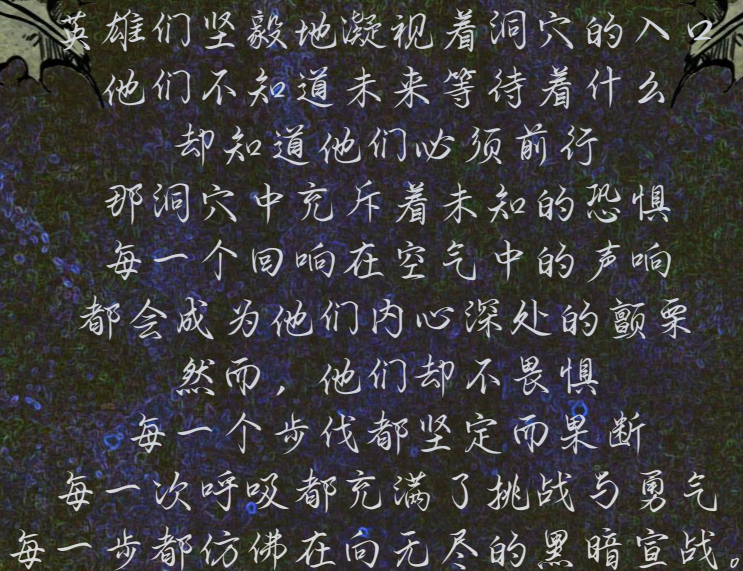 英雄们坚毅地凝视着洞穴的入口
他们不知道未来等待着什么
却知道他们必须前行
那洞穴中充斥着未知的恐惧
每一个回响在空气中的声响
都会成为他们内心深处的颤栗
然而，他们却不畏惧
每一个步伐都坚定而果断
每一次呼吸都充满了挑战与勇气
每一步都仿佛在向无尽的黑暗宣战。